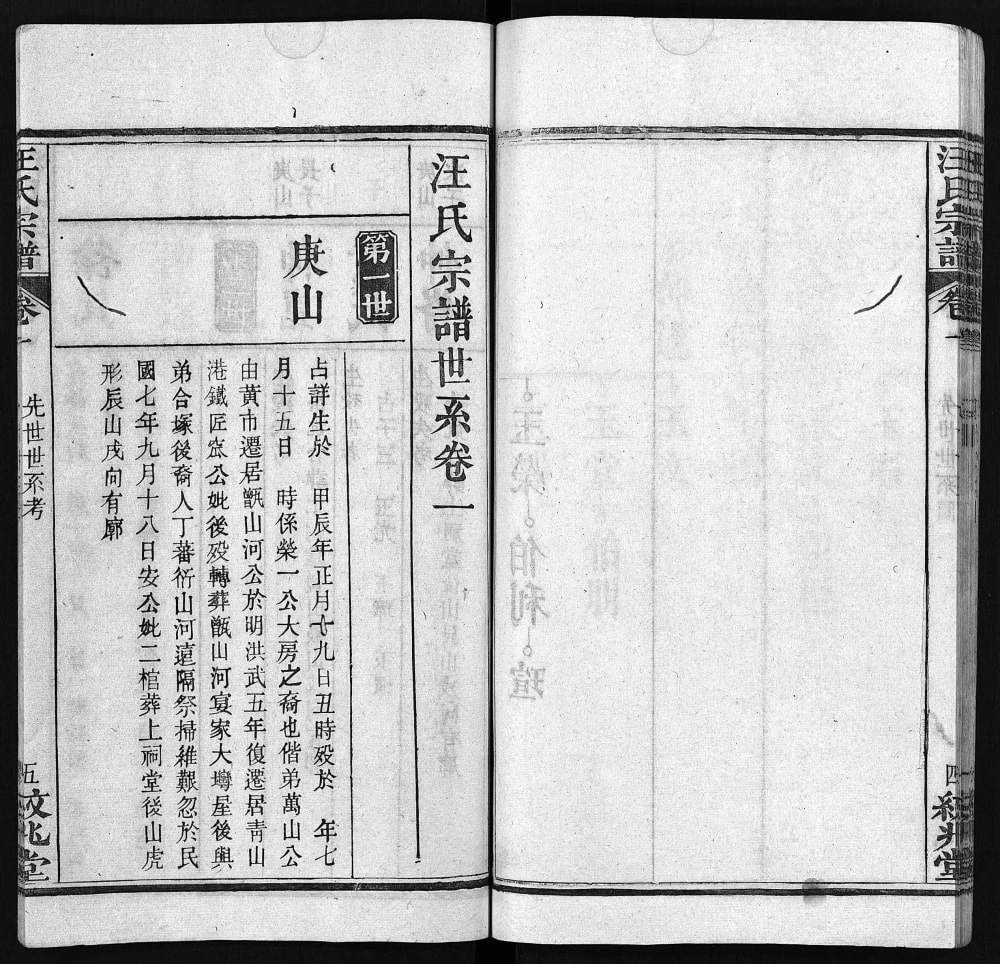 汪氏宗譜
卷一
先世世系圖
四
統兆堂
汪氏宗譜世系卷一
第一世
庚山
占詳生於　甲辰年正月十九日丑時歿於　年七
月十五日　時係榮一公大房之裔也偕弟萬山公
由黃市遷居甑山河公於明洪武五年復遷居青山
港鐵匠窊公妣後歿轉葬甑山河宴家大塆屋後與
弟合塚後裔人丁蕃衍山河遠隔祭掃維艱忽於民
國七年九月十八日安公妣二棺葬上祠堂後山虎
形辰山戌向有廓
汪氏宗譜
卷一
先世世系考
五